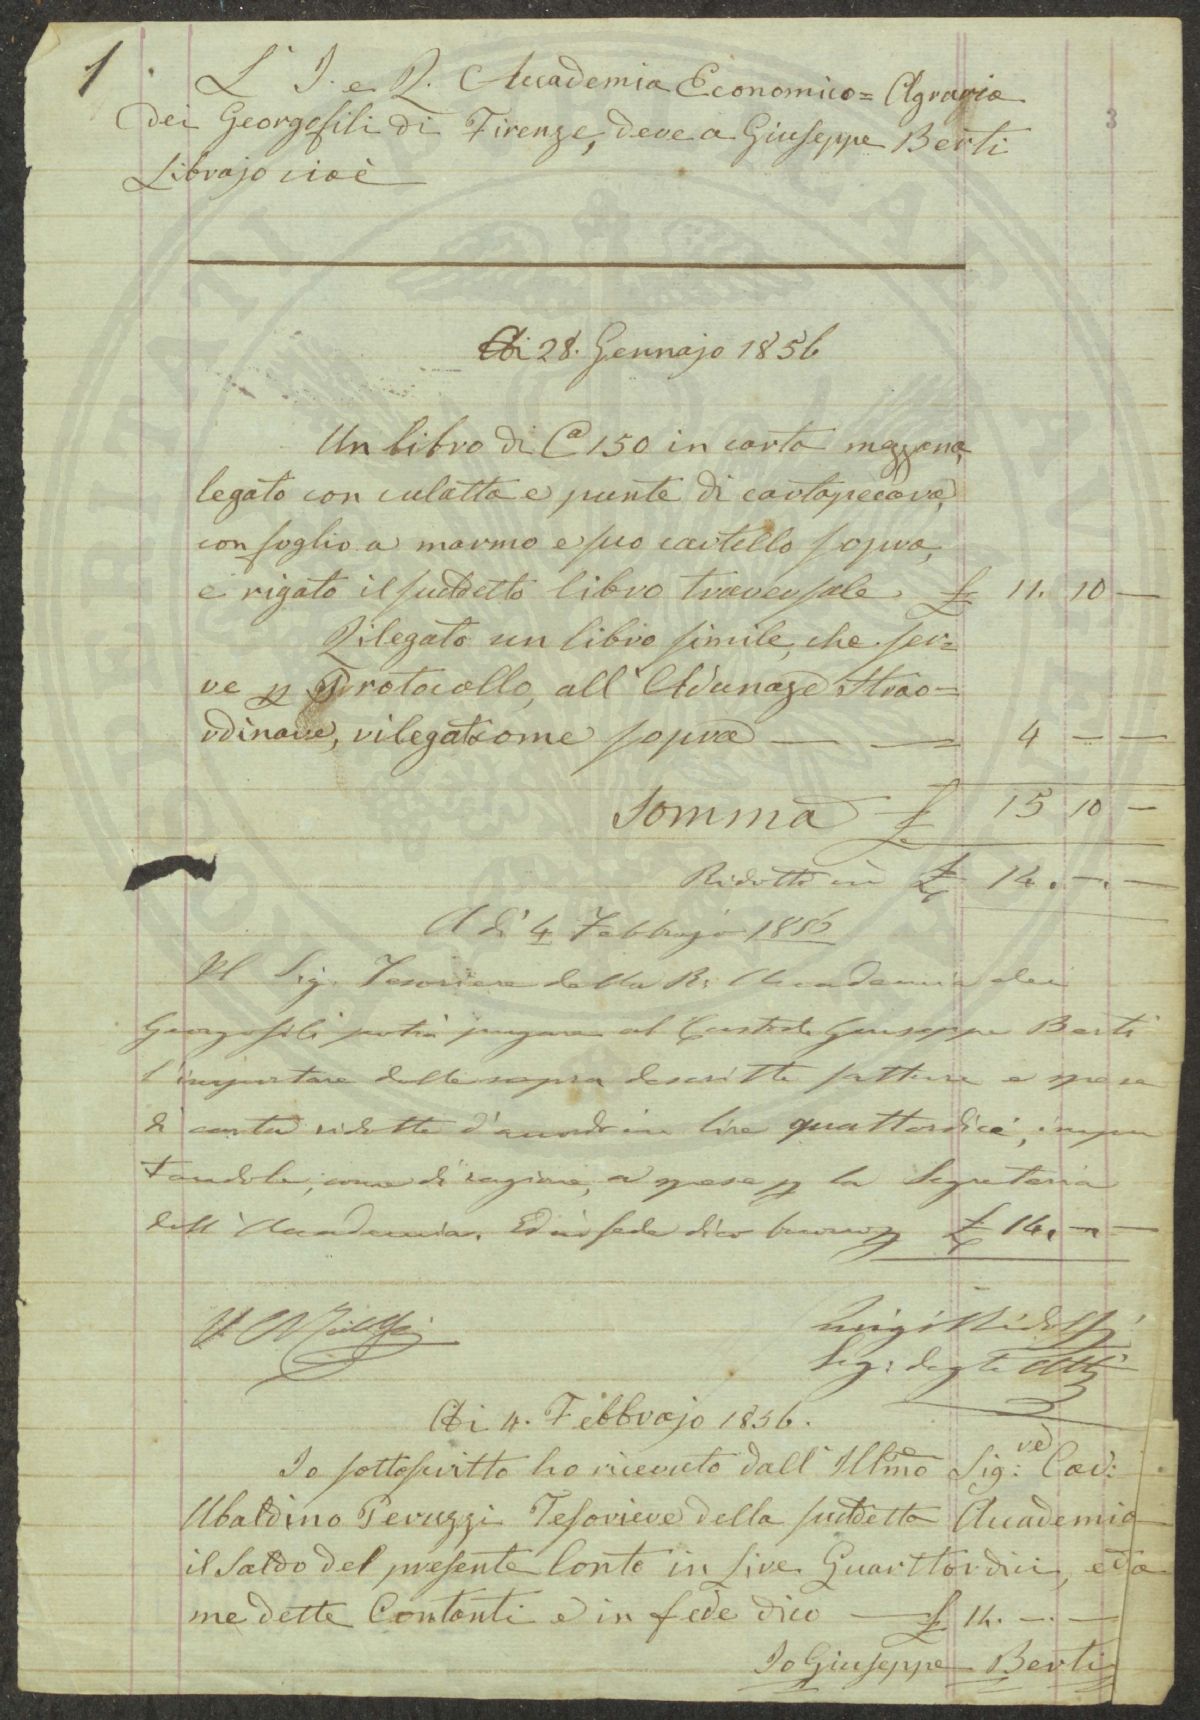 1
3
L' I. e R. Accademia Economico=Agraria
dei Georgofili di Firenze, deve a Giuseppe Berti
Librajo cioè
Adi 28. Gennajo 1856
Un libro di Ca 150 in carta mezzana,
legato con culatta e punte di cartapecora,
con foglio a marmo e suo cartello sopra,
e rigato il suddetto libro traversale. £ 11. 10 —
Rilegato un libro simile, che ser=
ve p Protocollo, all' Adunaze Strao=
rdinarie, rilegato come sopra — — 4 — —
Somma £ 15 10 —
Ridotto in £ 14. —. —
A dì 4 Febbrajo 1856
Il Sig. Tesoriere della R. Accademia dei
Georgofili potrà pagare al Custode Giuseppe Berti
l'importare delle sopra descritte fatture e spese
di carta ridotte d'accordo in lire quattordici, impu
tandole, come di ragione, a spese p la Segreteria
dell'Accademia. Ed in fede dico buono p £ 14. —. —
Luigi Ridolfi
Seg: degli Atti
Adi 4. Febbrajo 1856.
Io sottoscritto ho ricevuto dall' Illmo Sig:re Cav:
Ubaldino Peruzzi Tesoriere della suddetta Accademia
il saldo del presente Conto in Lire Quarttordici, ed a
me dette Contanti e in fede dico — £ 14. —. —
Io Giuseppe Berti